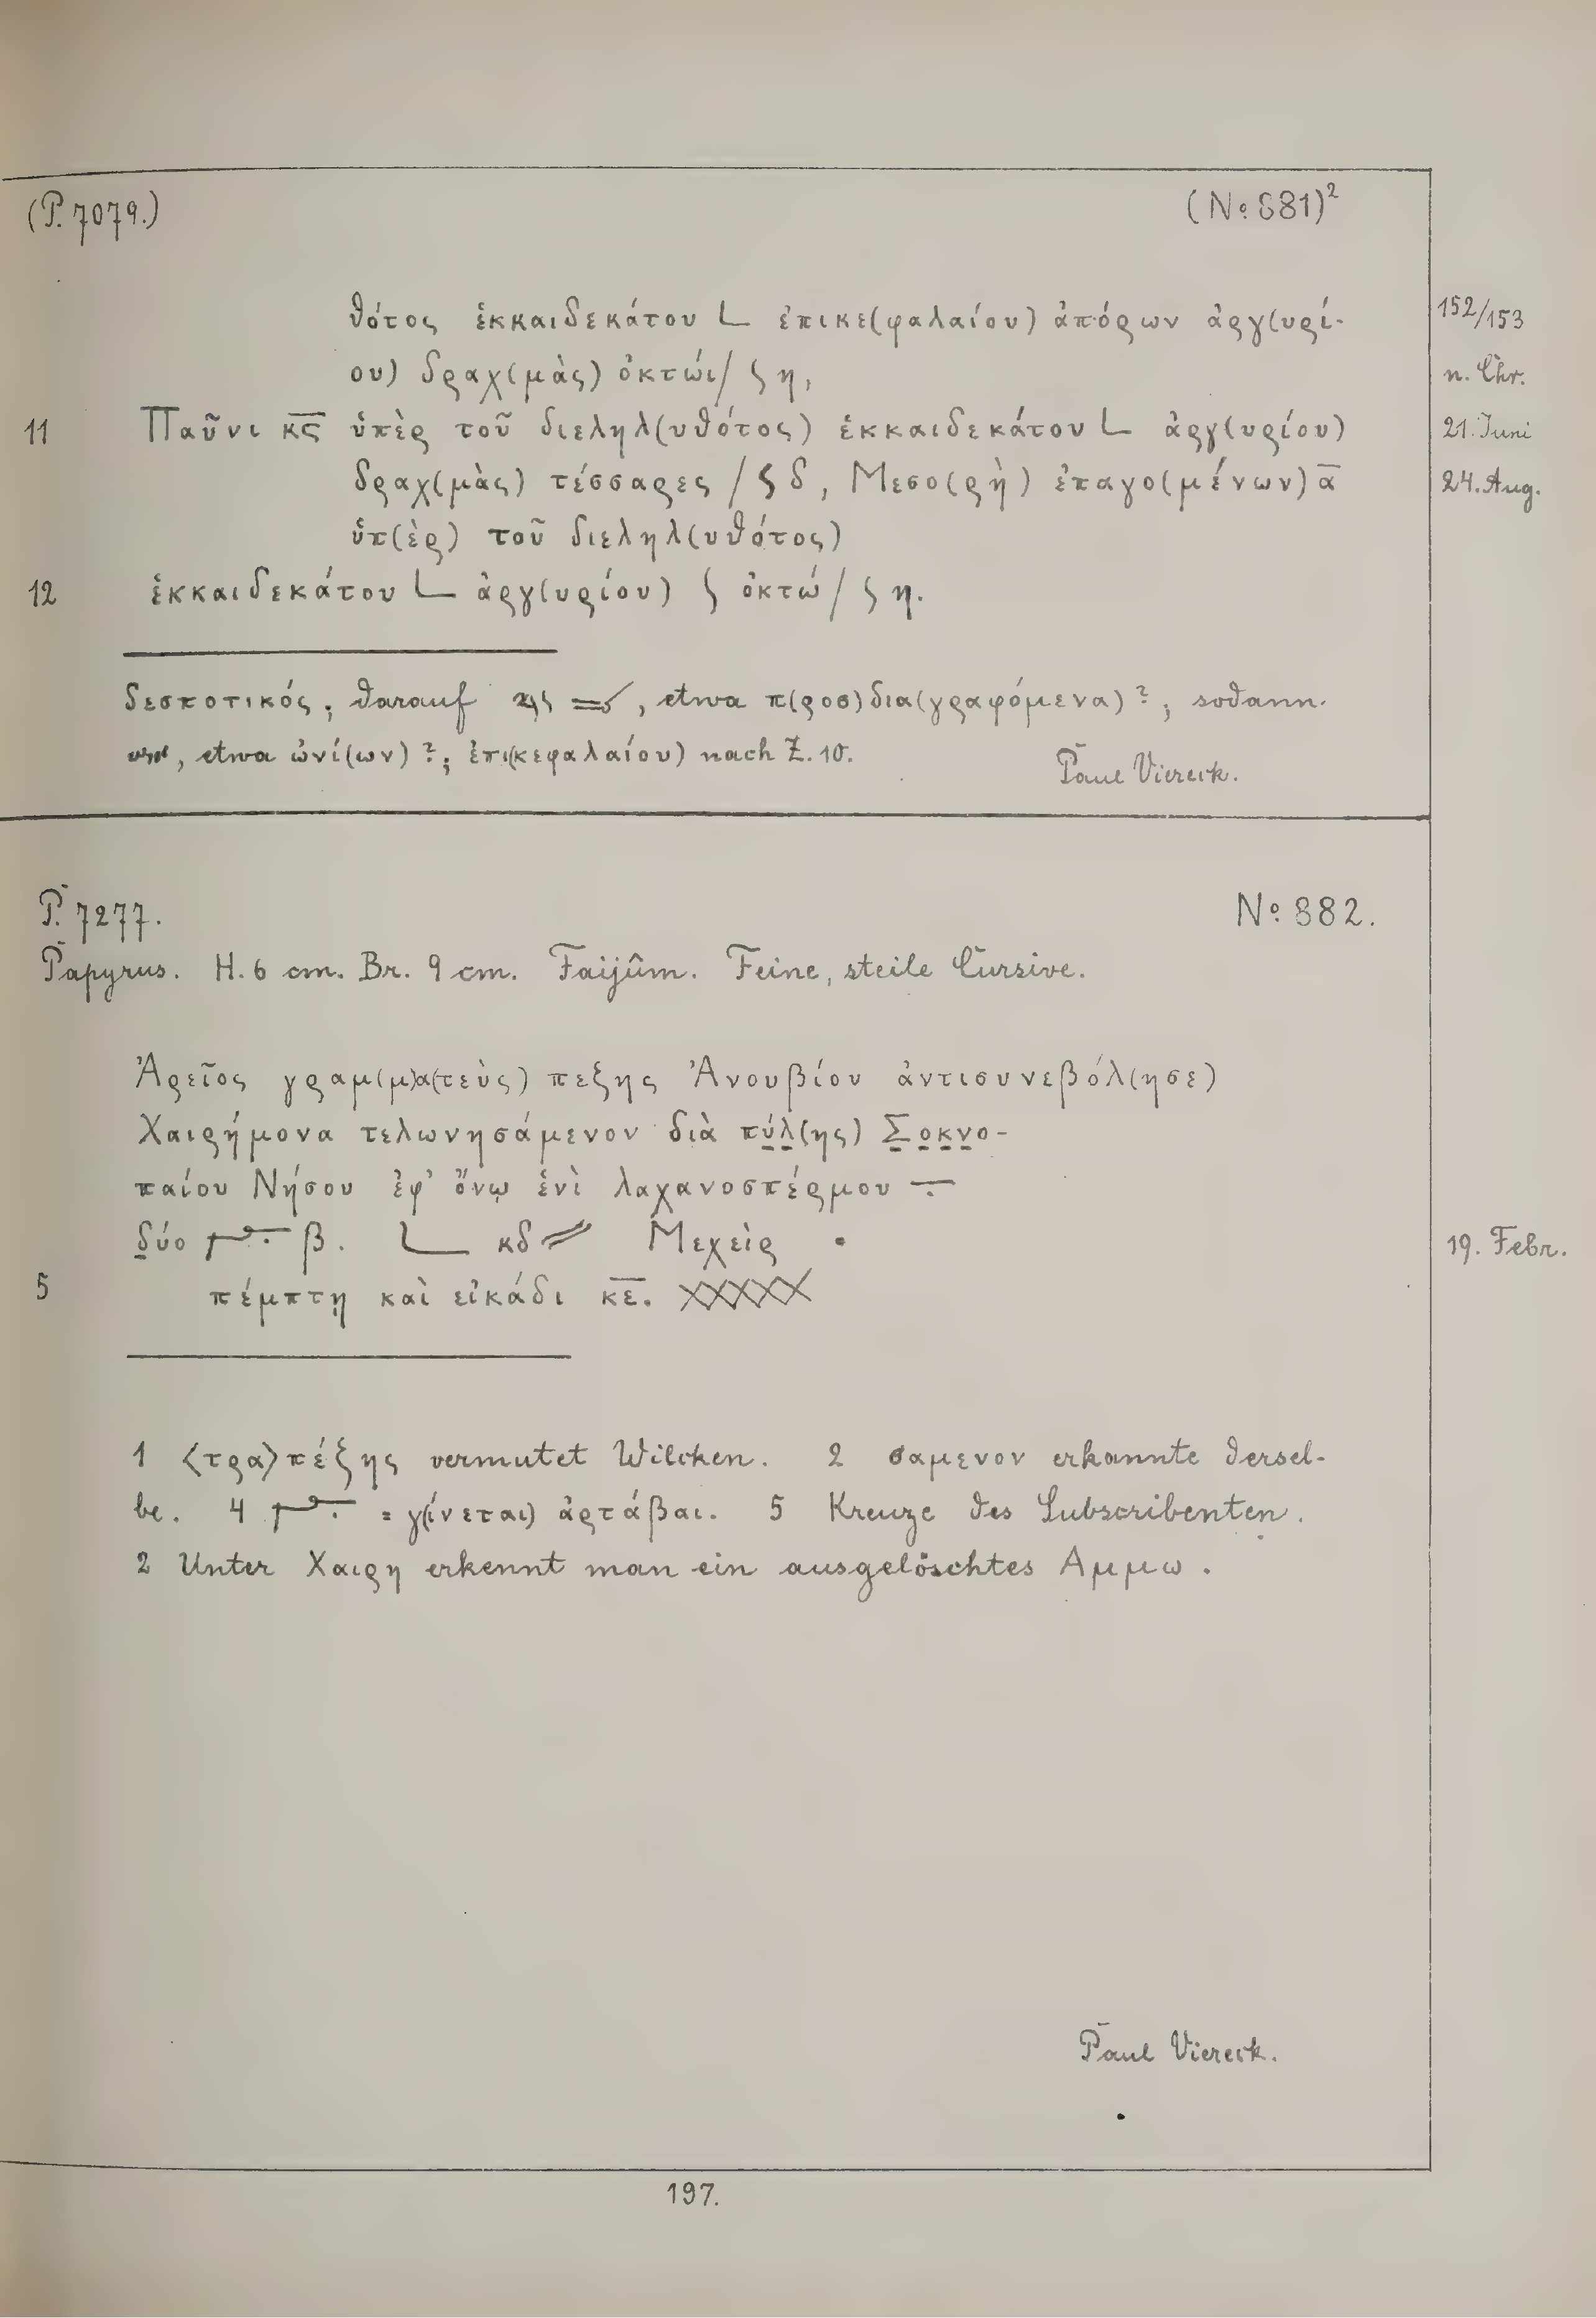 (P. 7079.) (No 881)²
θότος ἑκκαιδεκάτου L ἐπικε(φαλαίου) ἀπόρων ἀργ(υρί- 152/153
ου) δραχ(μὰς) ὀκτώι / ʃ η, n. Chr.
11 Παῦνι κϛ̅ ὑπὲρ τοῦ διεληλ(υθότος) ἑκκαιδεκάτου L ἀργ(υρίου) 21. Juni
δραχ(μὰς) τέσσαρες / ʃ δ, Μεσο(ρὴ) ἐπαγο(μένων) α̅ 24. Aug.
ὑπ(ὲρ) τοῦ διεληλ(υθότος)
12 ἑκκαιδεκάτου L ἀργ(υρίου) ʃ ὀκτώ / ʃ η.
δεσποτικός; darauf , etwa π(ροσ)δια(γραφόμενα)?; sodann
, etwa ὠνί(ων)?; ἐπι(κεφαλαίου) nach Z. 10. Paul Viereck.
P. 7277. No 882.
Papyrus. H. 6 cm. Br. 9 cm. Faijûm. Feine, steile Cursive.
Ἀρεῖος γραμ(μ)α(τεὺς) πεξης Ἀνουβίου ἀντισυνεβόλ(ησε)
Χαιρήμονα τελωνησάμενον διὰ πύ̣λ̣(ης) Σ̣ο̣κ̣ν̣ο-
παίου Νήσου ἐφ’ ὄνῳ ἑνὶ λαχανοσπέρμου
δ̣ύο β. L κδ // Μεχεὶρ 19. Febr.
5 πέμπτῃ καὶ εἰκάδι κε̅. XXXXX
1 〈τρα〉πέξης vermutet Wilcken. 2 σαμενον erkannte dersel-
be. 4 = γ(ίνεται) ἀρτάβαι. 5 Kreuze des Subscribenten.
2 Unter Χαιρη erkennt man ein ausgelöschtes Αμμω.
Paul Viereck.
197.